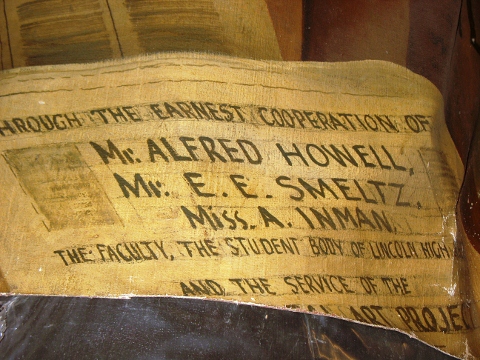 THROUGH THE EARNEST COOPERATION OF
Mr. ALFRED HOWELL,
Mr. E. E. SMELTZ,
Miss. A. INMAN,
THE FACULTY, THE STUDENT BODY OF LINCOLN HIGH
AND THE SERVICE OF THE
ART PROJEC